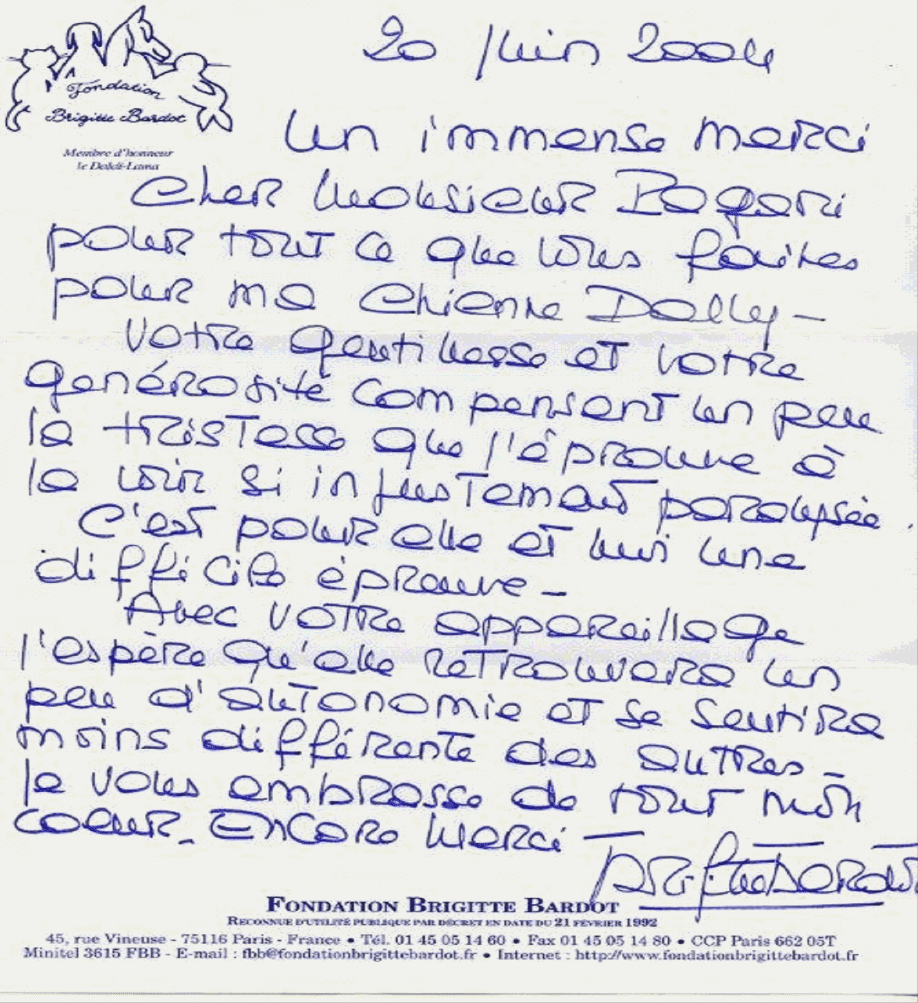 Fondation
Brigitte Bardot
Membre d'honneur
le Dalaï-Lama
20 Juin 2004
Un immense merci
Cher Monsieur Bogari
pour tout ce que vous faites
pour ma chienne Dolly -
Votre gentillesse et votre
générosité compensent un peu
la tristesse que j'éprouve à
la voir si injustement paralysée.
C'est pour elle et moi une
difficile épreuve -
Avec votre appareillage
j'espère qu'elle retrouvera un
peu d'autonomie et se sentira
moins différente des autres -
Je vous embrasse de tout mon
coeur. Encore Merci
Brigitte Bardot
FONDATION BRIGITTE BARDOT
RECONNUE D'UTILITÉ PUBLIQUE PAR DÉCRET EN DATE DU 21 FÉVRIER 1992
45, rue Vineuse - 75116 Paris - France • Tél. 01 45 05 14 60 • Fax 01 45 05 14 80 • CCP Paris 662 05T
Minitel 3615 FBB - E-mail : fbb@fondationbrigittebardot.fr • Internet : http://www.fondationbrigittebardot.fr